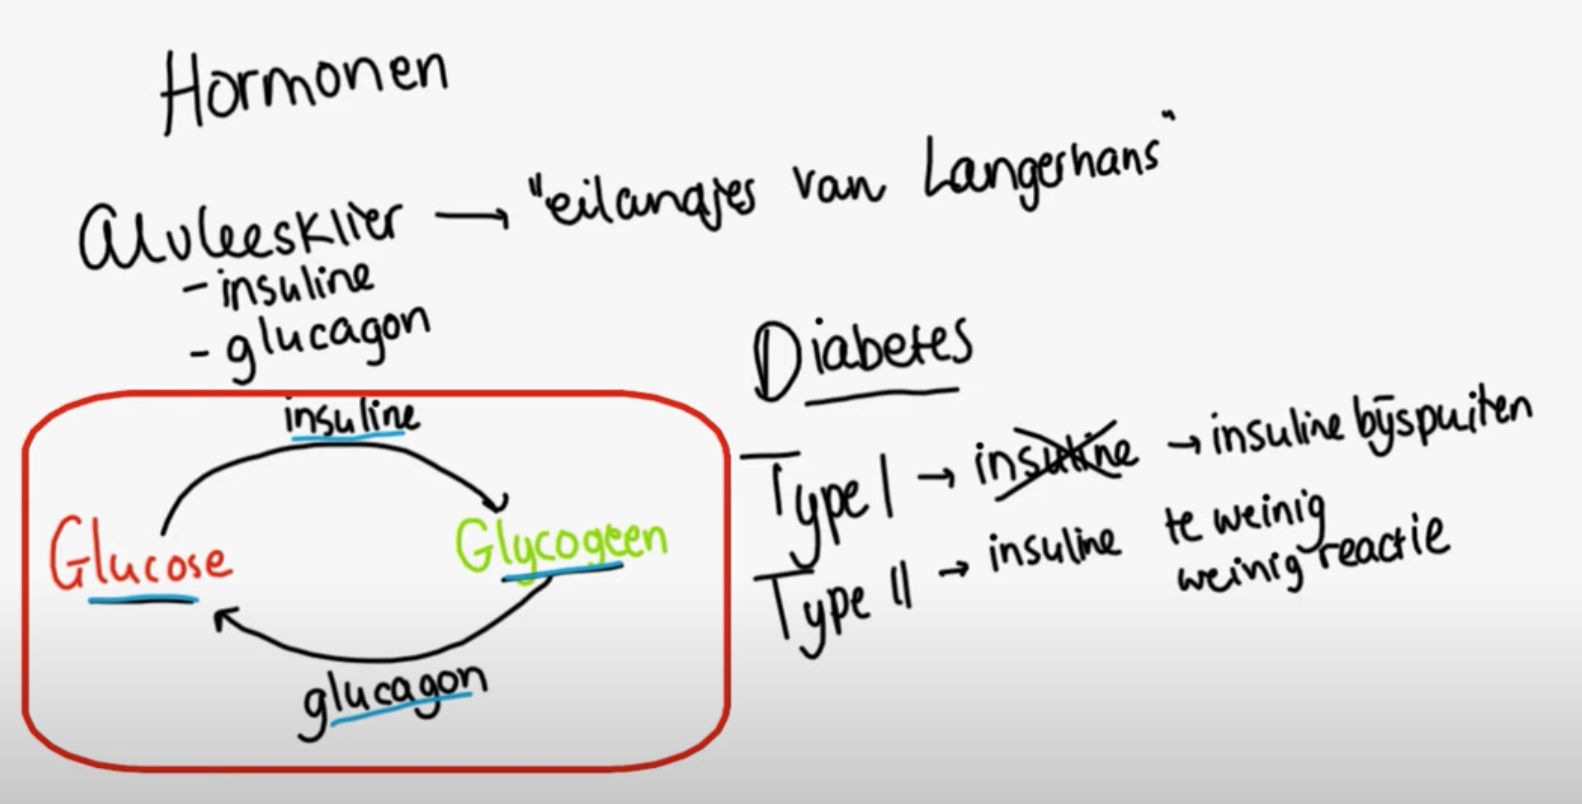 Hormonen
Alvleesklier → "eilandjes van Langerhans"
- insuline
- glucagon
insuline
Glucose
Glycogeen
glucagon
Diabetes
Type I → insuline → insuline bijspuiten
Type II → insuline te weinig
weinig reactie